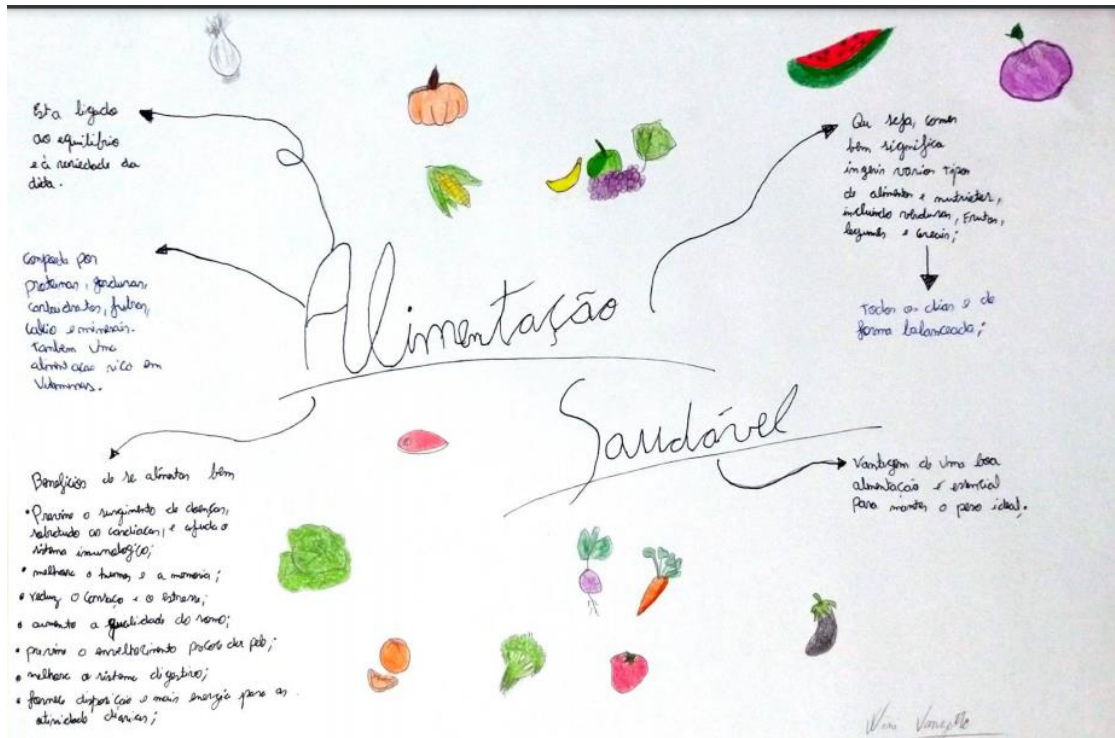 Esta ligado
ao equilíbrio
e à variedade da
dieta.
Composta por
proteinas, gorduras,
carboidratos, fibras,
cálcio e minerais.
Também uma
alimentação rica em
Vitaminas.
Alimentação
Saudável
Ou seja, comer
bem significa
ingerir varios tipos
de alimentos e
incluindo verduras, Frutas,
legumes e cereais;
Todos os dias e de
forma balanceada;
Vantagem de Uma boa
alimentação é essencial
Para manter o peso ideal.
Beneficios de se alimentar bem
• Previne o surgimento de doenças,
sobretudo as cardíacas, e ajuda o
sistema imunologico;
• melhora o humor e a memoria;
• reduz o cansaço e o estresse;
• aumenta a qualidade do sono;
• previne o envelhecimento precoce da pele;
• melhora o sistema digestivo;
• fornece disposição e mais energia para as
atividade diarias;